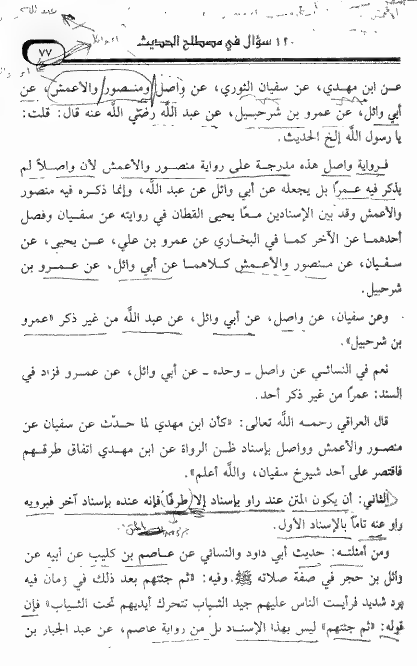 ١٢٠ سؤال في مصطلح الحديث
٧٧
عن ابن مهدي، عن سفيان الثوري، عن واصل ومنصور والأعمش، عن
أبي وائل، عن عمرو بن شرحبيل، عن عبد الله رضي الله عنه قال: قلت:
يا رسول الله إلخ الحديث.
فرواية واصل هذه مدرجة على رواية منصور والأعمش لأن واصلاً لم
يذكر فيه عمراً بل يجعله عن أبي وائل عن عبد الله، وإنما ذكره فيه منصور
والأعمش وقد بين الإسنادين معاً يحيى القطان في روايته عن سفيان وفصل
أحدهما عن الآخر كما في البخاري عن عمرو بن علي، عن يحيى، عن
سفيان، عن منصور والأعمش كلاهما عن أبي وائل، عن عمرو بن
شرحبيل.
وعن سفيان، عن واصل، عن أبي وائل، عن عبد الله من غير ذكر «عمرو
بن شرحبيل».
نعم في النسائي عن واصل ـ وحده ـ عن أبي وائل، عن عمرو فزاد في
السند: عمراً من غير ذكر أحد.
قال العراقي رحمه الله تعالى: «كأن ابن مهدي لما حدّث عن سفيان عن
منصور والأعمش وواصل بإسناد ظن الرواة عن ابن مهدي اتفاق طرقهم
فاقتصر على أحد شيوخ سفيان، والله أعلم».
الثاني: أن يكون المتن عند راو بإسناد إلا طرفاً فإنه عنده بإسناد آخر فيرويه
راو عنه تاماً بالإسناد الأول.
ومن أمثلته: حديث أبي داود والنسائي عن عاصم بن كليب عن أبيه عن
وائل بن حجر في صفة صلاته ﷺ. وفيه: «ثم جئتهم بعد ذلك في زمان فيه
برد شديد فرأيت الناس عليهم جيد الثياب تتحرك أيديهم تحت الثياب» فإن
قوله: «ثم جئتهم» ليس بهذا الإسناد بل من رواية عاصم، عن عبد الجبار بن